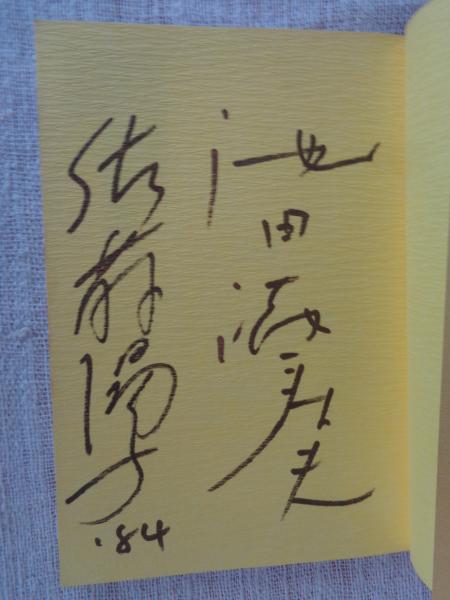 池田満寿夫
佐藤陽子
'84